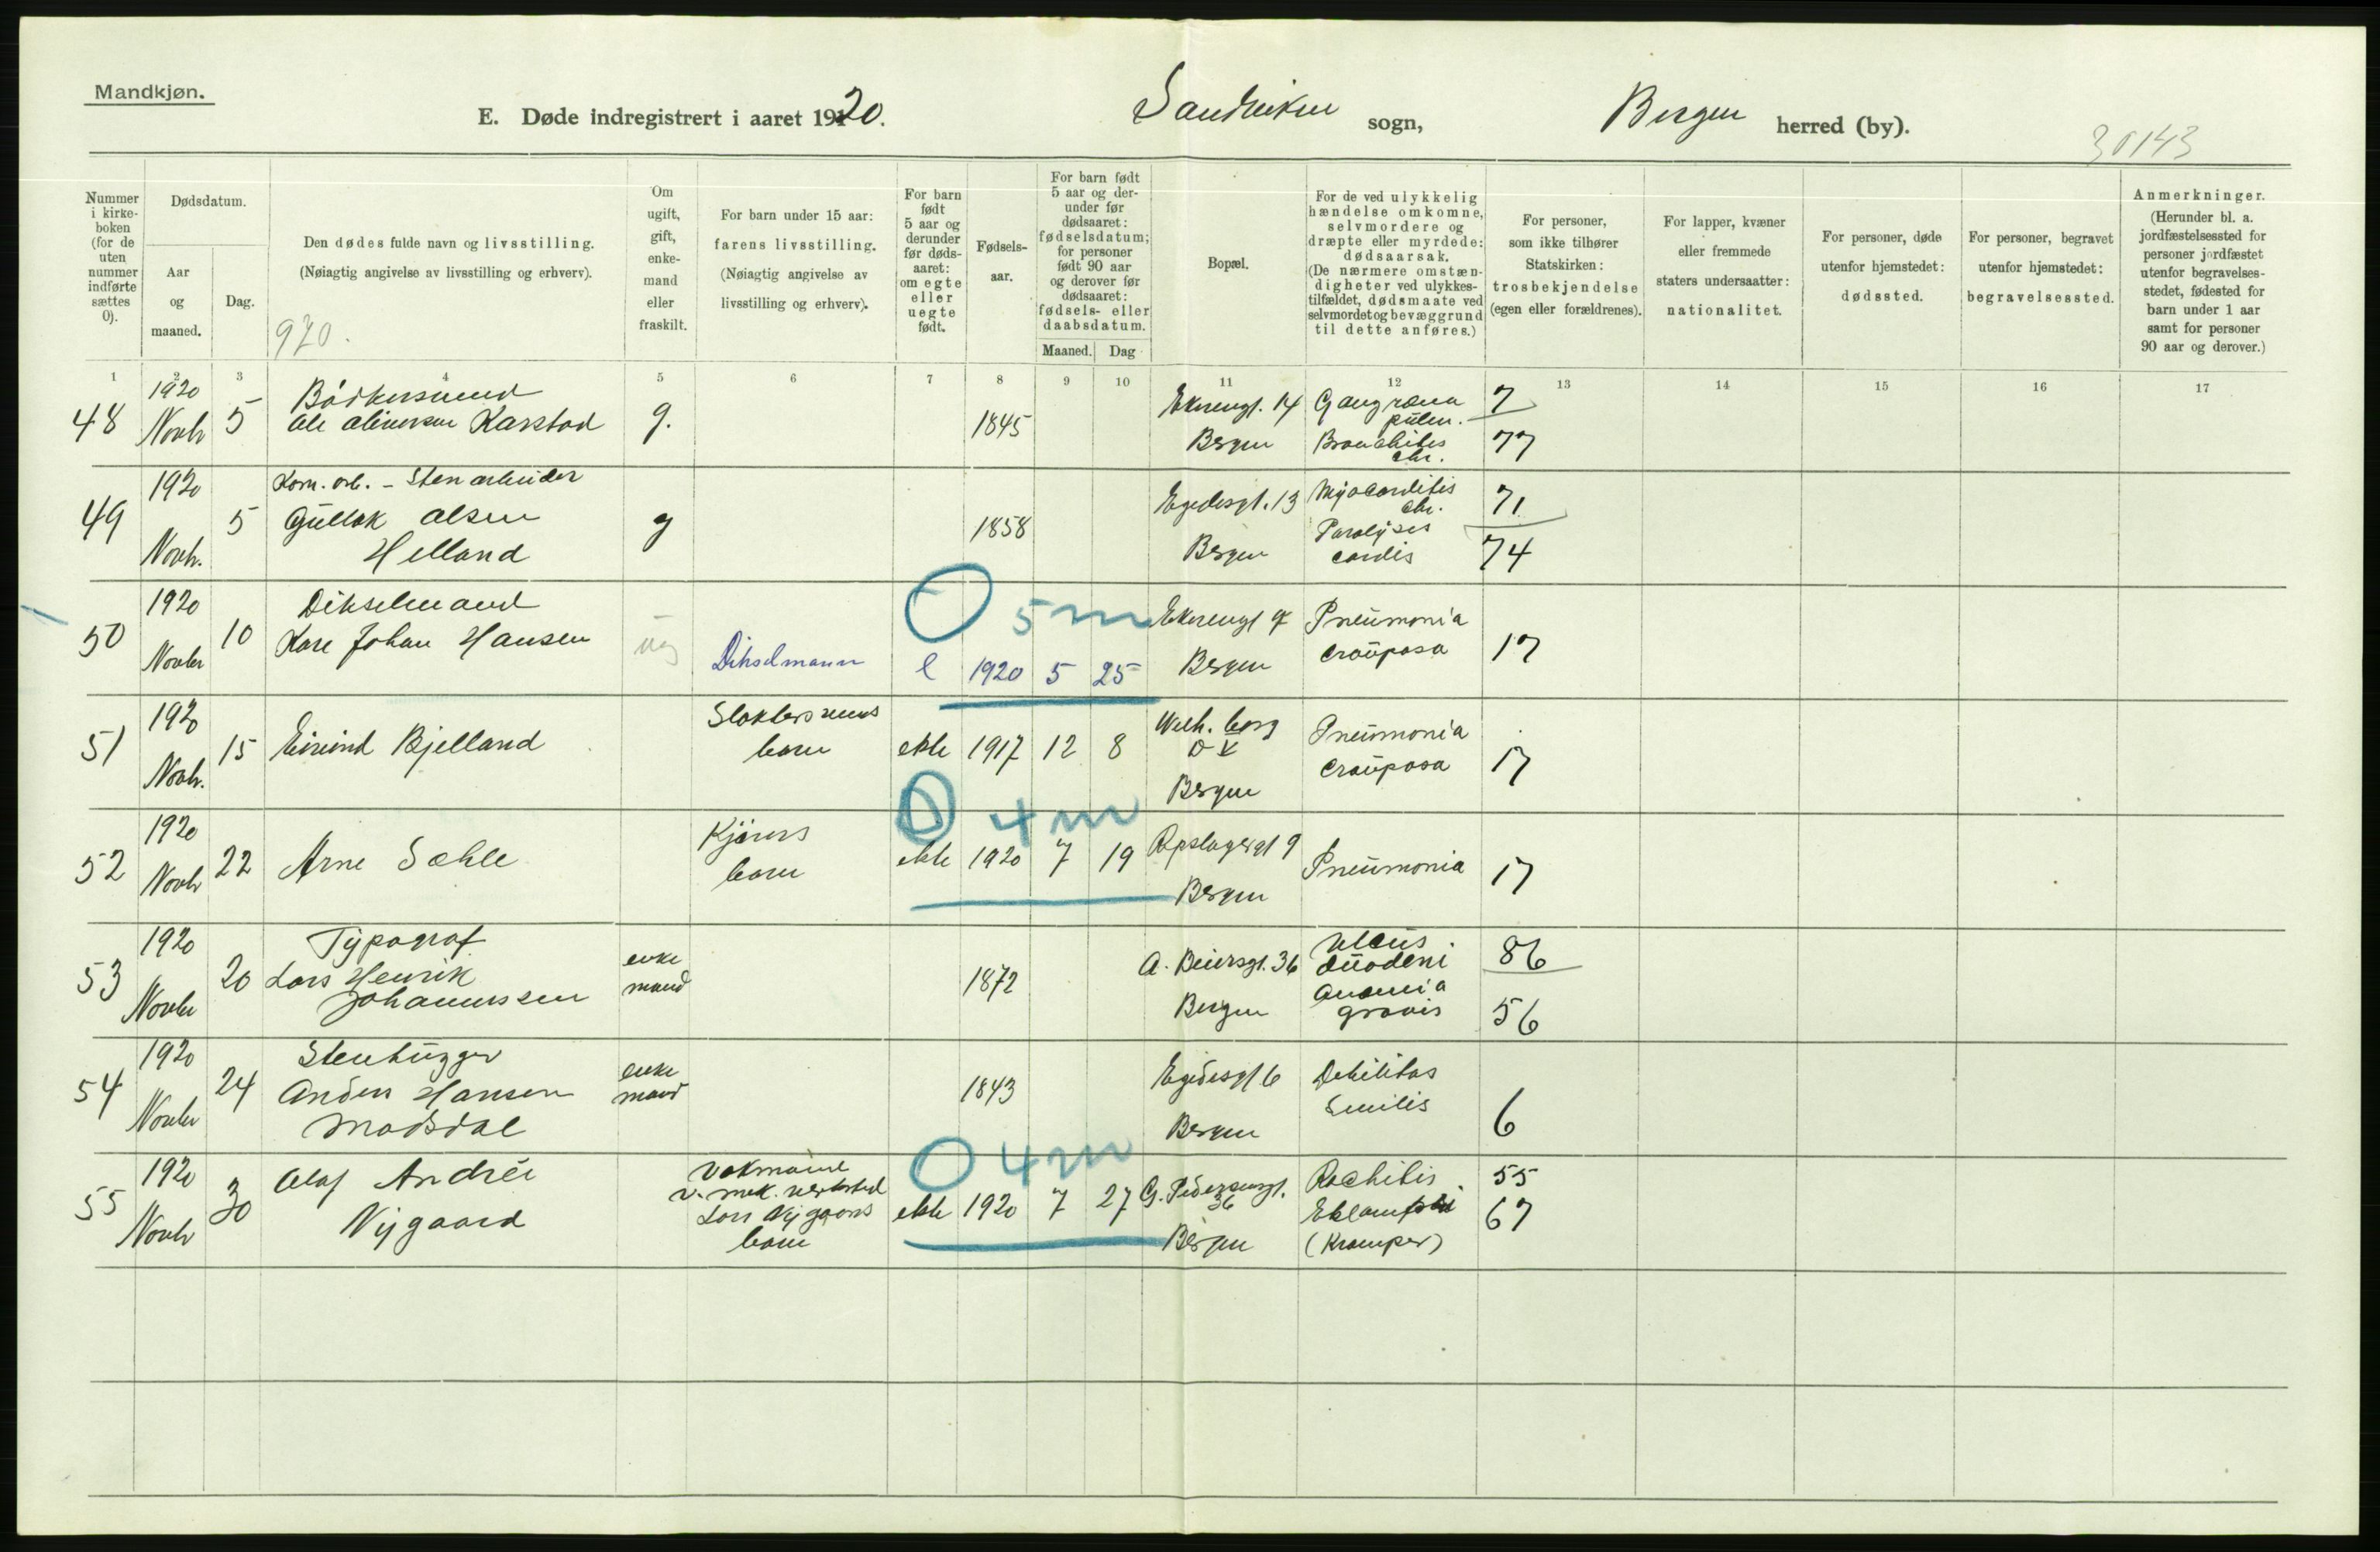 Mandkjøn.
E. Døde indregistrert i aaret 1920. Sandviken sogn, Bergen herred (by).
30143
Nummer i kirke-boken (for de uten nummer indførte sættes 0).
Dødsdatum.
Aar og maaned.
Dag.
Den dødes fulde navn og livsstilling.
(Nøiagtig angivelse av livsstilling og erhverv).
920.
Om ugift, gift, enke-mand eller fraskilt.
For barn under 15 aar:
farens livsstilling.
(Nøiagtig angivelse av livsstilling og erhverv).
For barn født 5 aar og derunder før døds-aaret: om egte eller uegte født.
Fødsels-aar.
For barn født 5 aar og der-under før dødsaaret: fødselsdatum; for personer født 90 aar og derover før dødsaaret: fødsels- eller daabsdatum.
Maaned. Dag
Bopæl.
For de ved ulykkelig hændelse omkomne, selvmordere og dræpte eller myrdede: dødsaarsak.
(De nærmere omstæn-digheter ved ulykkes-tilfældet, dødsmaate ved selvmordet og bevæggrund til dette anføres.)
For personer, som ikke tilhører Statskirken: trosbekjendelse (egen eller forældrenes).
For lapper, kvæner eller fremmede staters undersaatter: nationalitet.
For personer, døde utenfor hjemstedet: dødssted.
For personer, begravet utenfor hjemstedet: begravelsessted.
Anmerkninger.
(Herunder bl. a. jordfæstelsessted for personer jordfæstet utenfor begravelses-stedet, fødested for barn under 1 aar samt for personer 90 aar og derover.)
1 2 3 4 5 6 7 8 9 10 11 12 13 14 15 16 17
1920 Bödkersvend
48 Novb 5 Ole Karstad g. 1845 14 Gangræna pulm. 7
Bergen Bronchites chr. 77
1920 Kom. arb. - Stenarbeider
49 5 Gullak Olsen g 1858 Egedesgt. 13 Myocarditis chr. 71
Novb. Helland Bergen Paralyses cordis 74
1920 Dikselmand 5 m
50 Novbr 10 Kåre Johan Hansen ug Dikselmann e 1920 5 25 Bergen Pneumonia crouposa 17
1920 Slaktersvends
51 Novb. 15 Eivind Bjelland barn ekte 1917 12 8 Bergen Pneumonia crouposa 17
1920 Kjörers 4 m
52 Novb 22 Arne Sæhle barn ekte 1920 7 19 Repslagergt 9 Bergen Pneumonia 17
1920 Typograf
53 Novbr 20 Lars Henrik Johannessen enke mand 1872 A. Beiersgt. 36 Bergen Ulcus duodeni 86
Anæmia gravis 56
1920 Stenhugger
54 Novbr 24 Anders Hansen Madsdal enke mand 1843 Egedesgt 6 Bergen Debilitas Senilis 6
1920 Vakmand 4 m
55 Novb 30 Olaf Andréi Nygaard v. mek. verksted Lars Nygaards barn ekte 1920 7 27 G. Pedersensgt. 36 Bergen Rachitis 55
Eklampsi (Kramper) 67